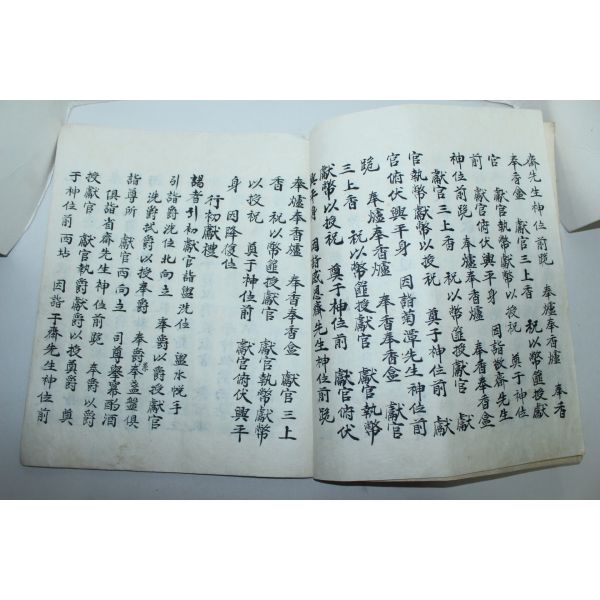 齋先生神位前跪　奉爐奉香爐　奉香
奉香盒　獻官三上香　祝以幣篚授獻
官　獻官執幣獻幣以授祝　奠于神位
前　獻官俯伏興平身　因詣敬齋先生
神位前跪　奉爐奉香爐　奉香奉香盒
獻官三上香　祝以幣篚授獻官　獻
官執幣獻幣以授祝　奠于神位前　獻
官俯伏興平身　因詣菊潭先生神位前
跪　奉爐奉香爐　奉香奉香盒　獻官
三上香　祝以幣篚授獻官　獻官執幣
獻幣以授祝　奠于神位前　獻官俯伏
興平身　因詣感恩齋先生神位前跪
奉爐奉香爐　奉香奉香盒　獻官三上
香　祝以幣篚授獻官　獻官執幣獻幣
以授祝　奠于神位前　獻官俯伏興平
身　因降復位
行初獻禮
謁者引初獻官詣盥洗位　盥水帨手
引詣爵洗位北向立　奉爵以爵授獻官
洗爵拭爵以授奉爵　奉爵奉盞盤俱
詣尊所　獻官西向立　司尊舉冪酌酒
俱詣省齋先生神位前跪　奉爵以爵
授獻官　獻官執爵獻爵以授奠爵　奠
于神位前西坫　因詣于齋先生神位前